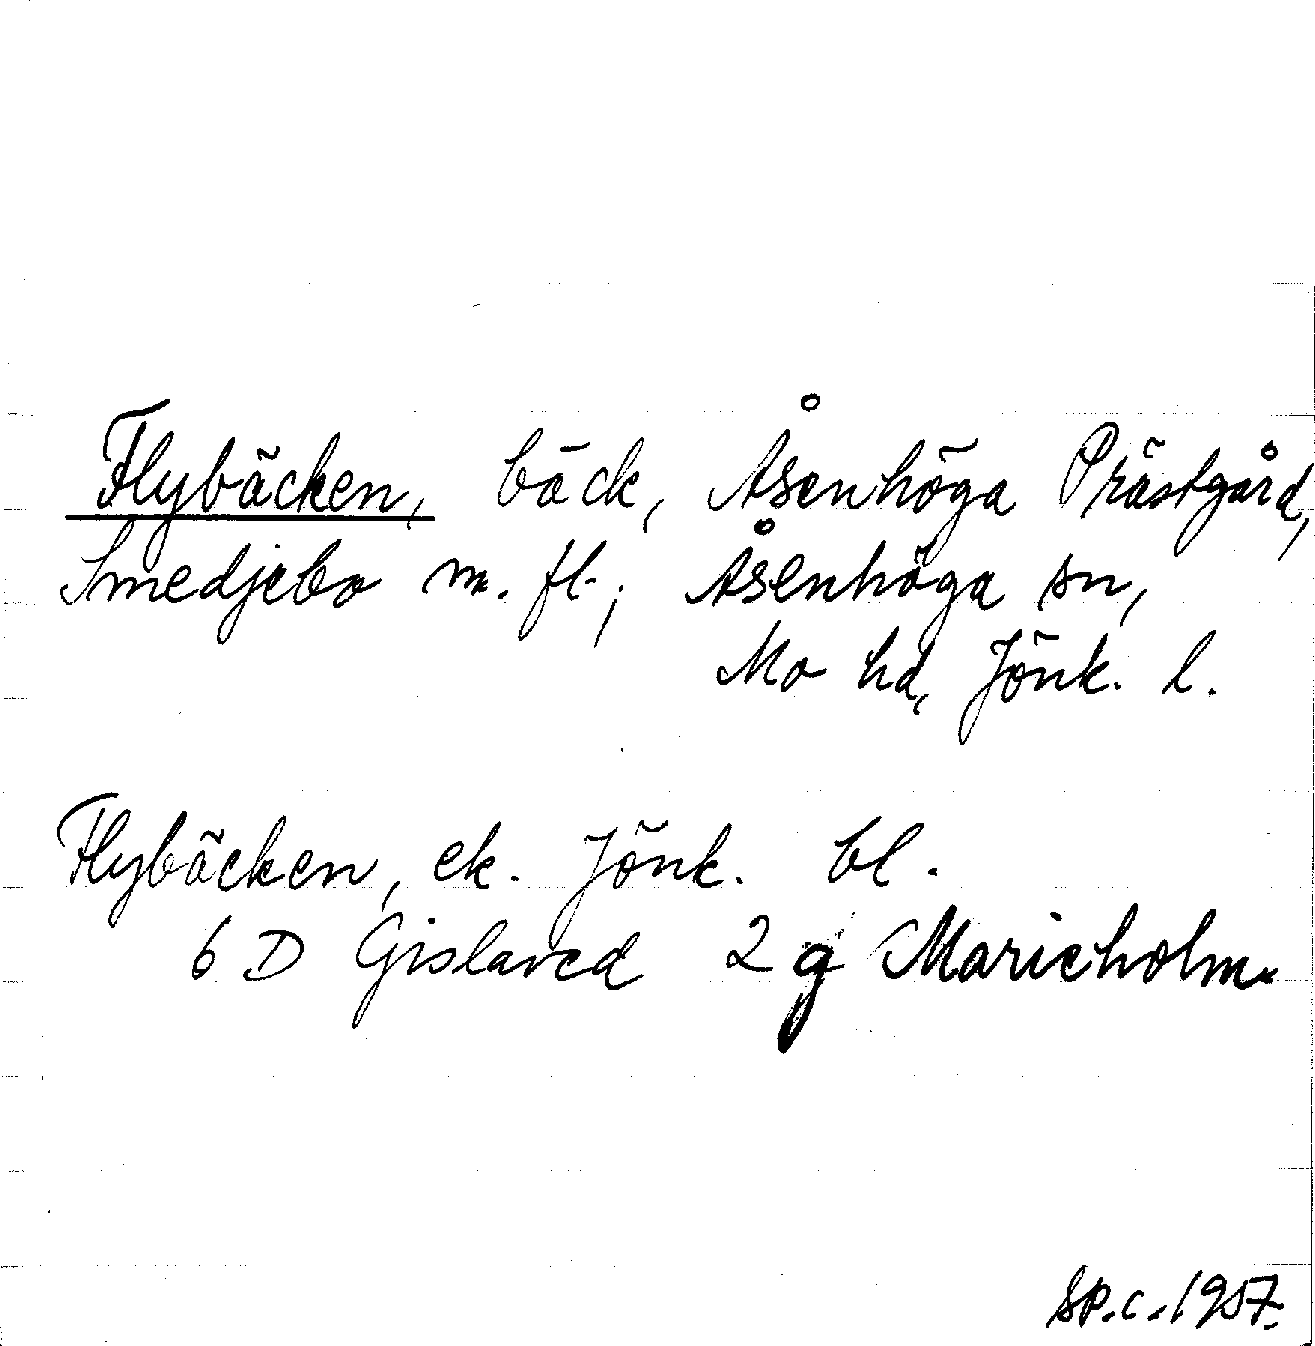 Flybäcken, bäck, Åsenhöga Prästgård,
Smedjebo m. fl.; Åsenhöga sn,
Mo hd, Jönk. l.
Flybäcken, ek. Jönk. bl.
6 D Gislaved 2 g Marieholm.
SP.c. 1957.